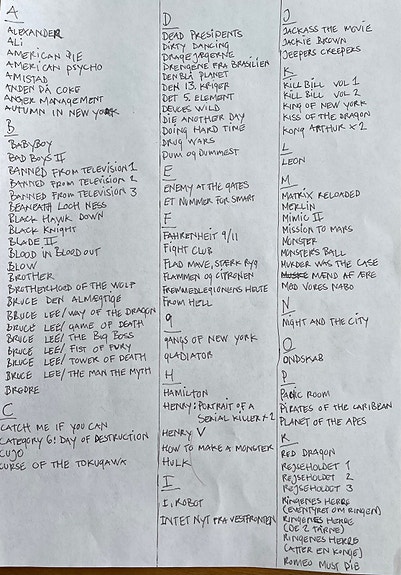 A
ALEXANDER
ALI
AMERICAN PIE
AMERICAN PSYCHO
AMISTAD
ANDEN PÅ COKE
ANGER MANAGEMENT
AUTUMN IN NEW YORK
B
BABYBOY
BAD BOYS II
BANNED FROM TELEVISION 1
BANNED FROM TELEVISION 2
BANNED FROM TELEVISION 3
BENEATH LOCH NESS
BLACK HAWK DOWN
BLACK KNIGHT
BLADE II
BLOOD IN BLOOD OUT
BLOW
BROTHER
BROTHERHOOD OF THE WOLF
BRUCE DEN ALMÆGTIGE
BRUCE LEE/ WAY OF THE DRAGON
BRUCE LEE/ GAME OF DEATH
BRUCE LEE/ THE BIG BOSS
BRUCE LEE/ FIST OF FURY
BRUCE LEE/ TOWER OF DEATH
BRUCE LEE/ THE MAN THE MYTH
BRØDRE
C
CATCH ME IF YOU CAN
CATEGORY 6: DAY OF DESTRUCTION
CUJO
CURSE OF THE TOKUGAWA
D
DEAD PRESIDENTS
DIRTY DANCING
DRAGEJÆGERNE
DRENGENE FRA BRASILIEN
DEN BLÅ PLANET
DEN 13. KRIGER
DET 5. ELEMENT
DEUCES WILD
DIE ANOTHER DAY
DOING HARD TIME
DRUG WARS
DUM OG DUMMEST
E
ENEMY AT THE GATES
ET NUMMER FOR SMART
F
FAHRENHEIT 9/11
FIGHT CLUB
FLAD MAVE, STÆRK RYG
FLAMMEN OG CITRONEN
FREMMEDLEGIONENS HELTE
FROM HELL
G
GANGS OF NEW YORK
GLADIATOR
H
HAMILTON
HENRY: PORTRAIT OF A
SERIAL KILLER × 2
HENRY V
HOW TO MAKE A MONSTER
HULK
I
I, ROBOT
INTET NYT FRA VESTFRONTEN
J
JACKASS THE MOVIE
JACKIE BROWN
JEEPERS CREEPERS
K
KILL BILL VOL 1
KILL BILL VOL 2
KING OF NEW YORK
KISS OF THE DRAGON
KONG ARTHUR × 2
L
LEON
M
MATRIX RELOADED
MERLIN
MIMIC II
MISSION TO MARS
MONSTER
MONSTERS BALL
MURDER WAS THE CASE
MÆND AF ÆRE
MØD VORES NABO
N
NIGHT AND THE CITY
O
ONDSKAB
P
PANIC ROOM
PIRATES OF THE CARIBEAN
PLANET OF THE APES
R
RED DRAGON
REJSEHOLDET 1
REJSEHOLDET 2
REJSEHOLDET 3
RINGENES HERRE
(EVENTYRET OM RINGEN)
RINGENES HERRE
(DE 2 TÅRNE)
RINGENES HERRE
(ATTER EN KONGE)
ROMEO MUST DIE